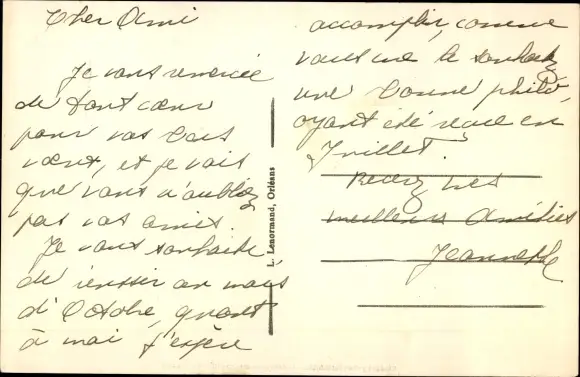 Cher Ami
Je vous remercie
de tout cœur
pour vos bons
vœux, et je vois
que vous n'oubliez
pas vos amis.
Je vous souhaite,
de réussir au mois
d'Octobre, quant
à moi j'espère
L. Lenormand, Orléans
accomplir, comme
vous me le souhaitez
une bonne philo,
ayant été reçue en
Juillet.
Recevez mes
meilleures Amitiés
Jeannette